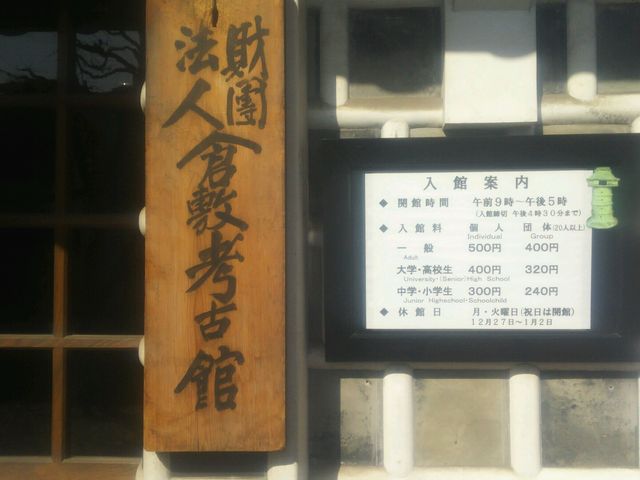 財團
法人
倉敷考古館
入館案内
◆ 開館時間 午前9時～午後5時
(入館締切 午後4時30分まで)
◆ 入館料 個人 団体(20人以上)
Individual Group
一般 500円 400円
Adult
大学・高校生 400円 320円
University・(Senior) High School
中学・小学生 300円 240円
Junior Highschool・Schoolchild
◆ 休館日 月・火曜日(祝日は開館)
12月27日～1月2日